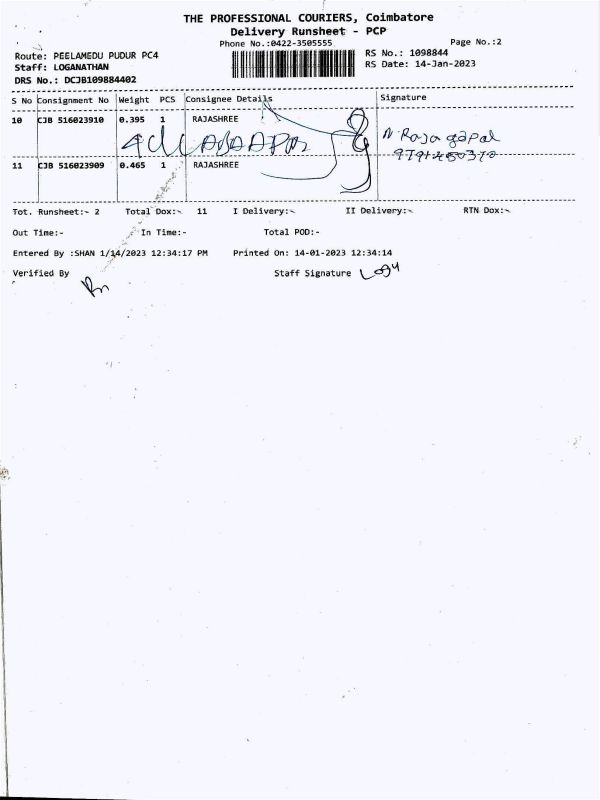 THE PROFESSIONAL COURIERS, Coimbatore
Delivery Runsheet - PCP
Phone No.:0422-3505555 Page No.:2
Route: PEELAMEDU PUDUR PC4 RS No.: 1098844
Staff: LOGANATHAN RS Date: 14-Jan-2023
DRS No.: DCJB109884402
S No Consignment No Weight PCS Consignee Details Signature
10 CJB 516023910 0.395 1 RAJASHREE
N Rajagopal
11 CJB 516023909 0.465 1 RAJASHREE
Tot. Runsheet:- 2 Total Dox:- 11 I Delivery:- II Delivery:- RTN Dox:-
Out Time:- In Time:- Total POD:-
Entered By :SHAN 1/14/2023 12:34:17 PM Printed On: 14-01-2023 12:34:14
Verified By Staff Signature Logu